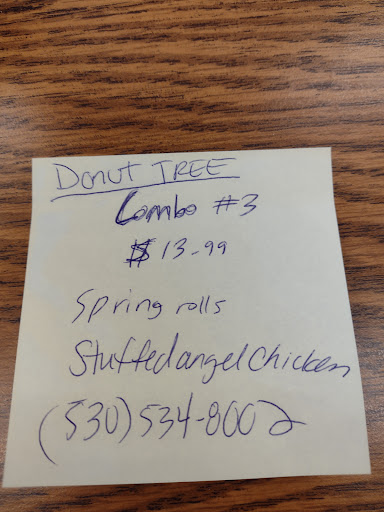 Donut TREE
Combo #3
$13.99
Spring rolls
Stuffed angel chicken
(530) 534-8002